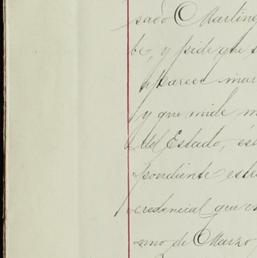 sado Martine
be, y pide que s
aparece mar
y que mide m
del Estado, ese
pondiente este
credencial que
smo de Marzo